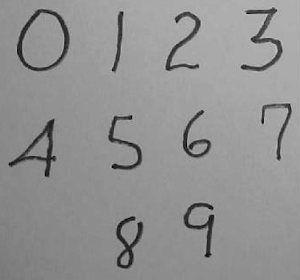 0 1 2 3
4 5 6 7
8 9